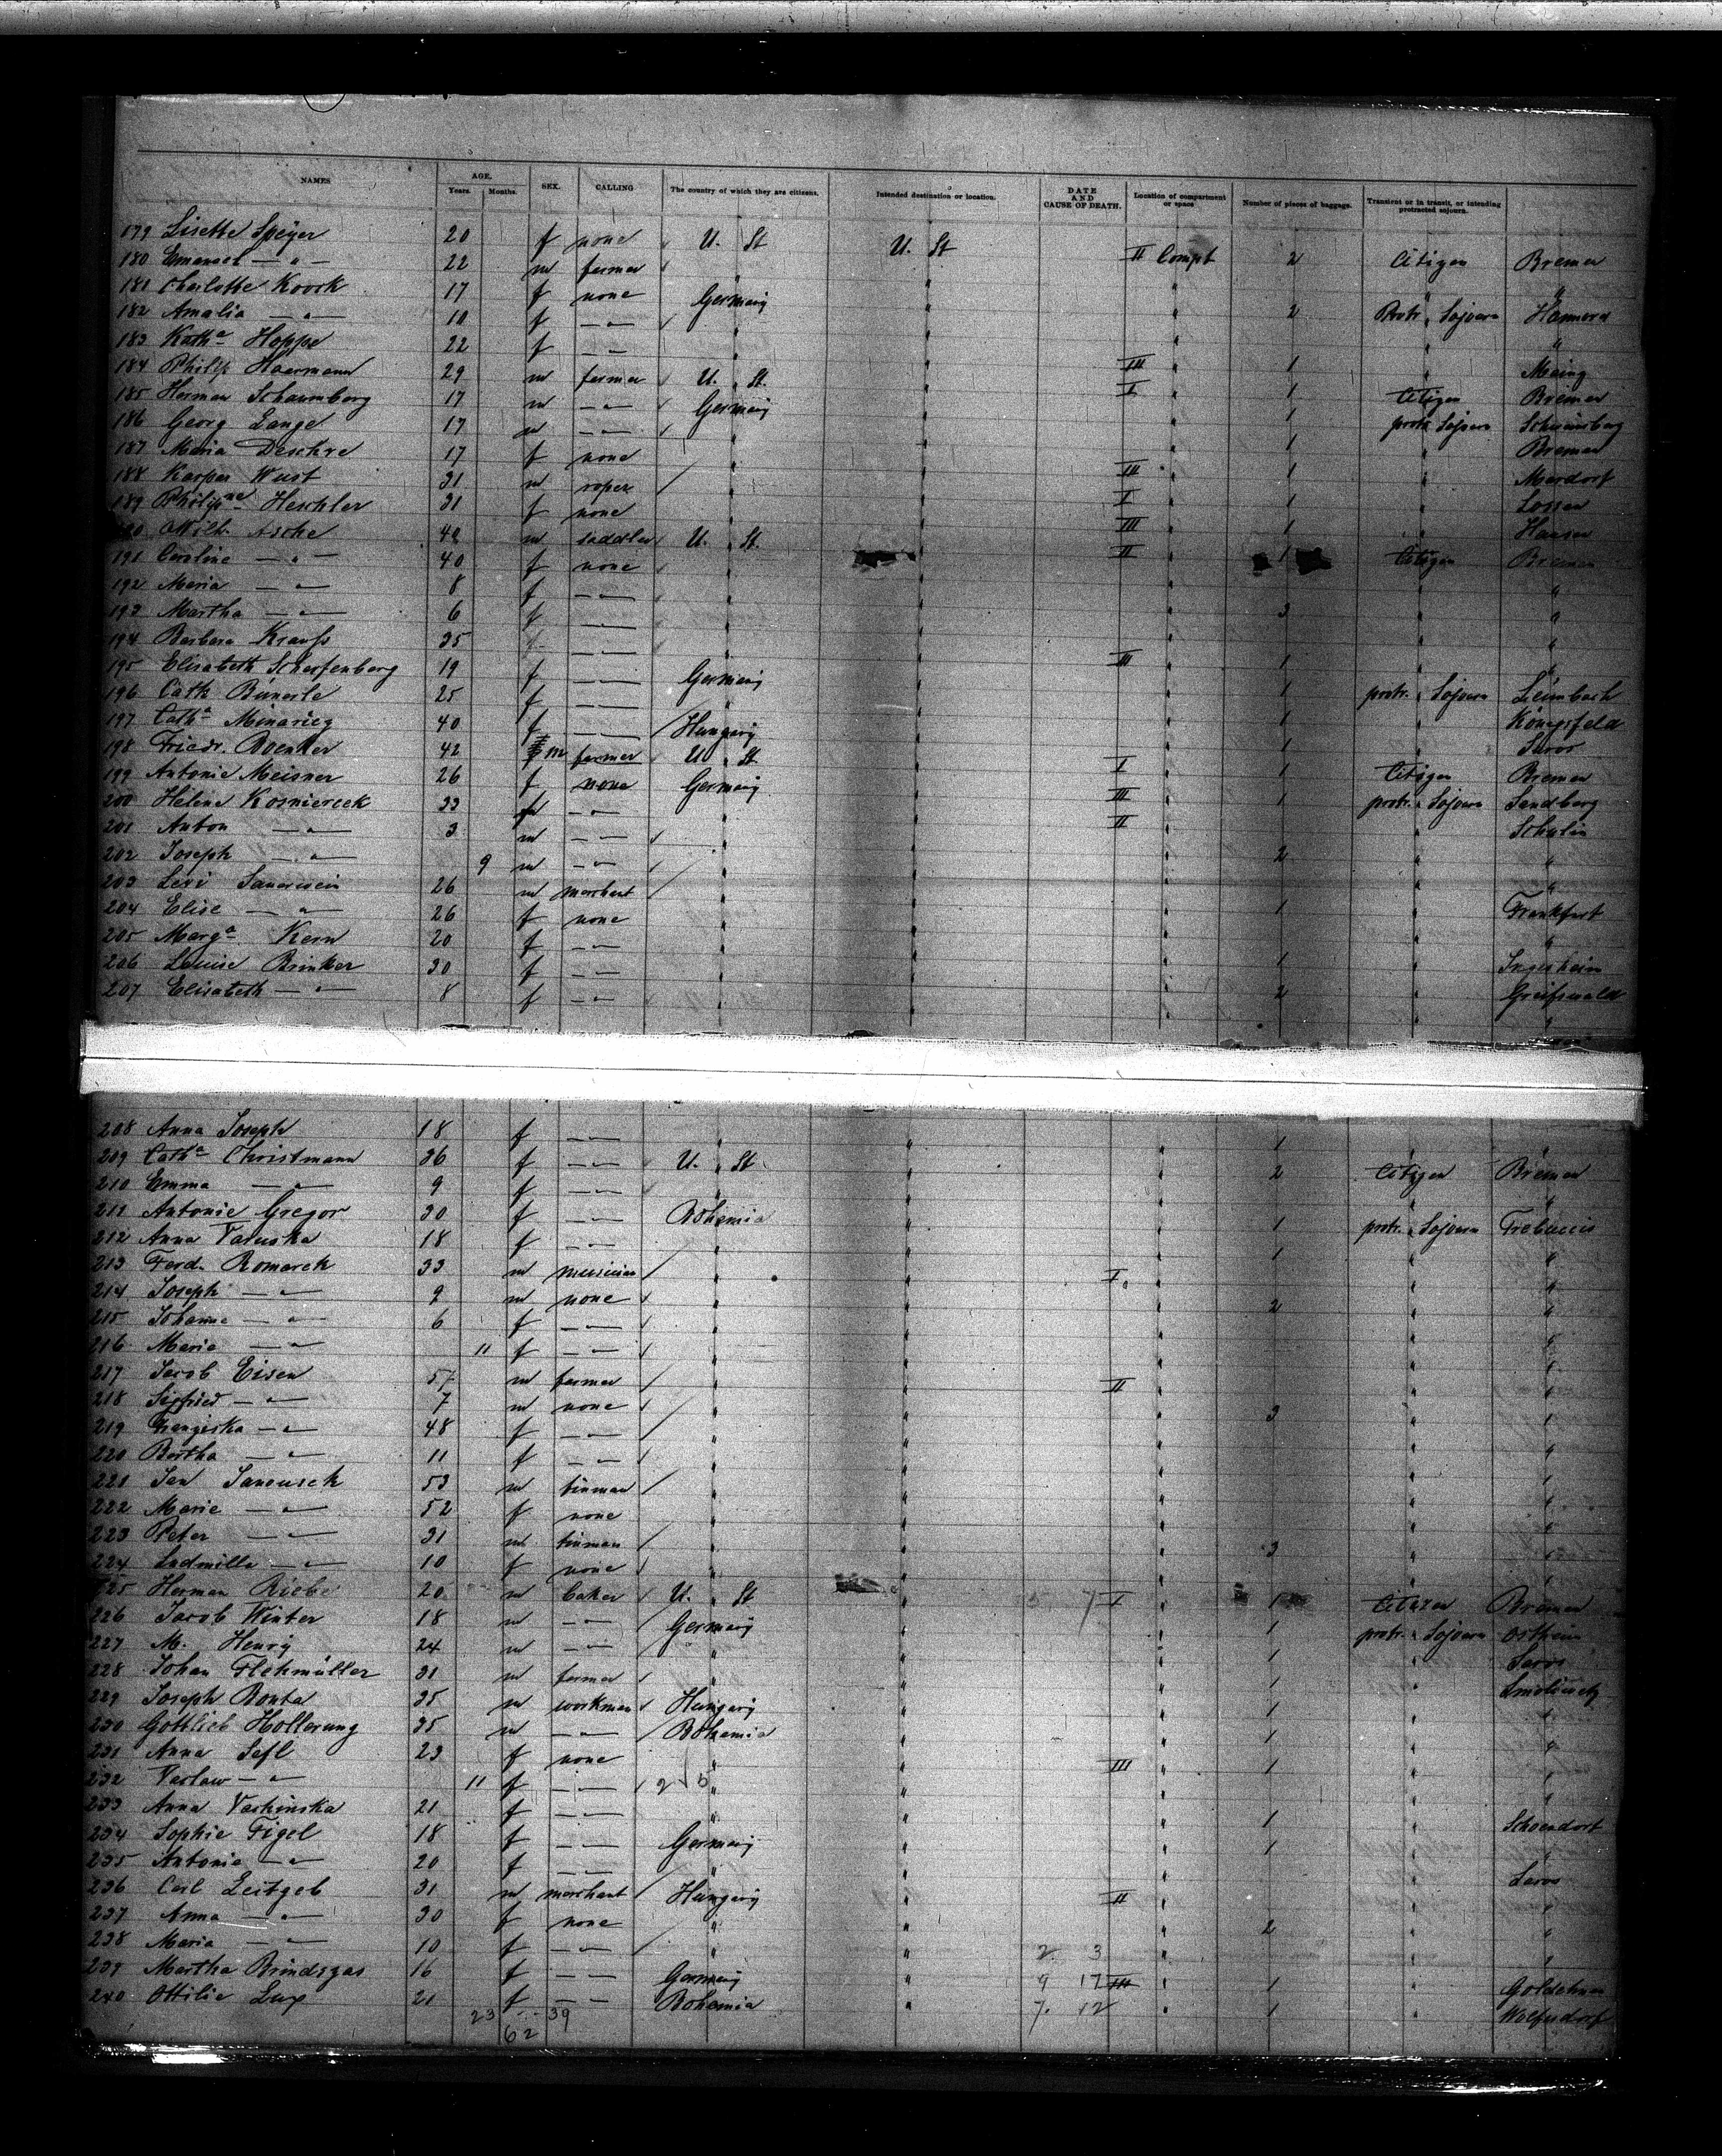 NAMES AGE. Years. Months. SEX. CALLING The country of which they are citizens. Intended destination or location. DATE AND CAUSE OF DEATH. Location of compartment or space Number of pieces of baggage. Transient or in transit, or intending protracted sojourn.
179 Lisette Speyer 20 f none U. St U. St II Compt 2 Citizen Bremen
180 Emanuel — " — 22 m farmer " " "
181 Charlotte Koock 17 f none Germany " 2 Protr. Sojourn Hannover
182 Amalia — " — 10 f — " — " " "
183 Katha Hoppe 22 f — " — " " III 1 " Mainz
184 Philip Haermann 29 m farmer U. St. " I 1 Citizen Bremen
185 Herman Schaumberg 17 m — " — Germany " 1 protr. Sojourn
186 Georg Lange 17 m — " — " " 1 " Bremen
187 Maria 17 f none " " III 1 " Mardorf
188 Kasper Wust 31 m roper " " I 1 "
189 Philipne Heschler 31 f none " " III 1 "
190 Wilh. Asche 42 m saddler U. St. " II 1 Citizen Bremen
191 Caroline — " — 40 f none " " "
192 Maria — " — 8 f — " — " " 3 "
193 Martha — " — 6 f — " — " " "
194 Barbara Krauss 35 f — " — " " III 1 "
195 Elisabeth Scharfenberg 19 f — " — Germany " 1 protr. Sojourn Leimbach
196 Cath 25 f — " — " " 1 " Königsfeld
197 Catha 40 f — " — Hungary " 1 " Saros
198 Friedr. Boenker 42 m farmer U. St. " I 1 Citizen Bremen
199 Antonie Meisner 26 f none Germany " III 1 protr. Sojourn Sandberg
200 Helene 33 f — " — " " II "
201 Anton — " — 3 m — " — " " 2 "
202 Joseph — " — 9 m — " — " " "
203 Levi 26 m merchant " " 1 " Frankfurt
204 Elise — " — 26 f none " " "
205 Marga Kern 20 f — " — " " 1 "
206 Louise Brinker 30 f — " — " " 2 " Greifswald
207 Elisabeth — " — 8 f — " — " " "
208 Anna Joseph 18 f — " — " " 1 "
209 Catha Christmann 36 f — " — U. St. " 2 Citizen Bremen
210 Emma — " — 9 f — " — " " "
211 Antonie Gregor 30 f — " — Bohemia " 1 protr. Sojourn
212 Anna 18 f — " — " " 1 "
213 Ferd. Romarek 33 m musician " " I "
214 Joseph — " — 9 m none " " 2 "
215 Johanne — " — 6 f — " — " " "
216 Marie — " — 11 f — " — " " "
217 Jacob Eisen 57 m farmer " " II "
218 Sigfried — " — 7 m none " " 3 "
219 Franziska — " — 48 f — " — " " "
220 Bertha — " — 11 f — " — " " "
221 Jan Janousek 53 m tinman " " "
222 Marie — " — 52 f none " " "
223 Peter — " — 31 m tinman " " 3 "
224 Ludmilla — " — 10 f none " " "
225 Herman Riebe 20 m baker U. St " I 1 Citizen Bremen
226 Jacob Winter 18 m — " — Germany " 1 protr. Sojourn Ostheim
227 M. Henry 24 m — " — " " 1 " Saros
228 Johan Flehmüller 31 m farmer " " 1 "
229 Joseph Bonta 35 m workman Hungary " 1 "
230 Gottlieb Hollerung 35 m — " — Bohemia " 1 "
231 Anna Sefl 23 f none " " III 1 "
232 — " — 11 f — " — " " "
233 Anna 21 f — " — " " 1 " Schoendorf
234 Sophie Figel 18 f — " — Germany " 1 "
235 Antonie — " — 20 f — " — " " " Saros
236 Carl Leitgeb 31 m merchant Hungary " II "
237 Anna — " — 30 f none " " 2 "
238 Maria — " — 10 f — " — " " 2 3 "
239 Martha 16 f — " — Germany " 9 17 III 1 "
240 Ottilie Lux 21 f — " — Bohemia " 7. 12 1 " Wolfsdorf
23 39
62